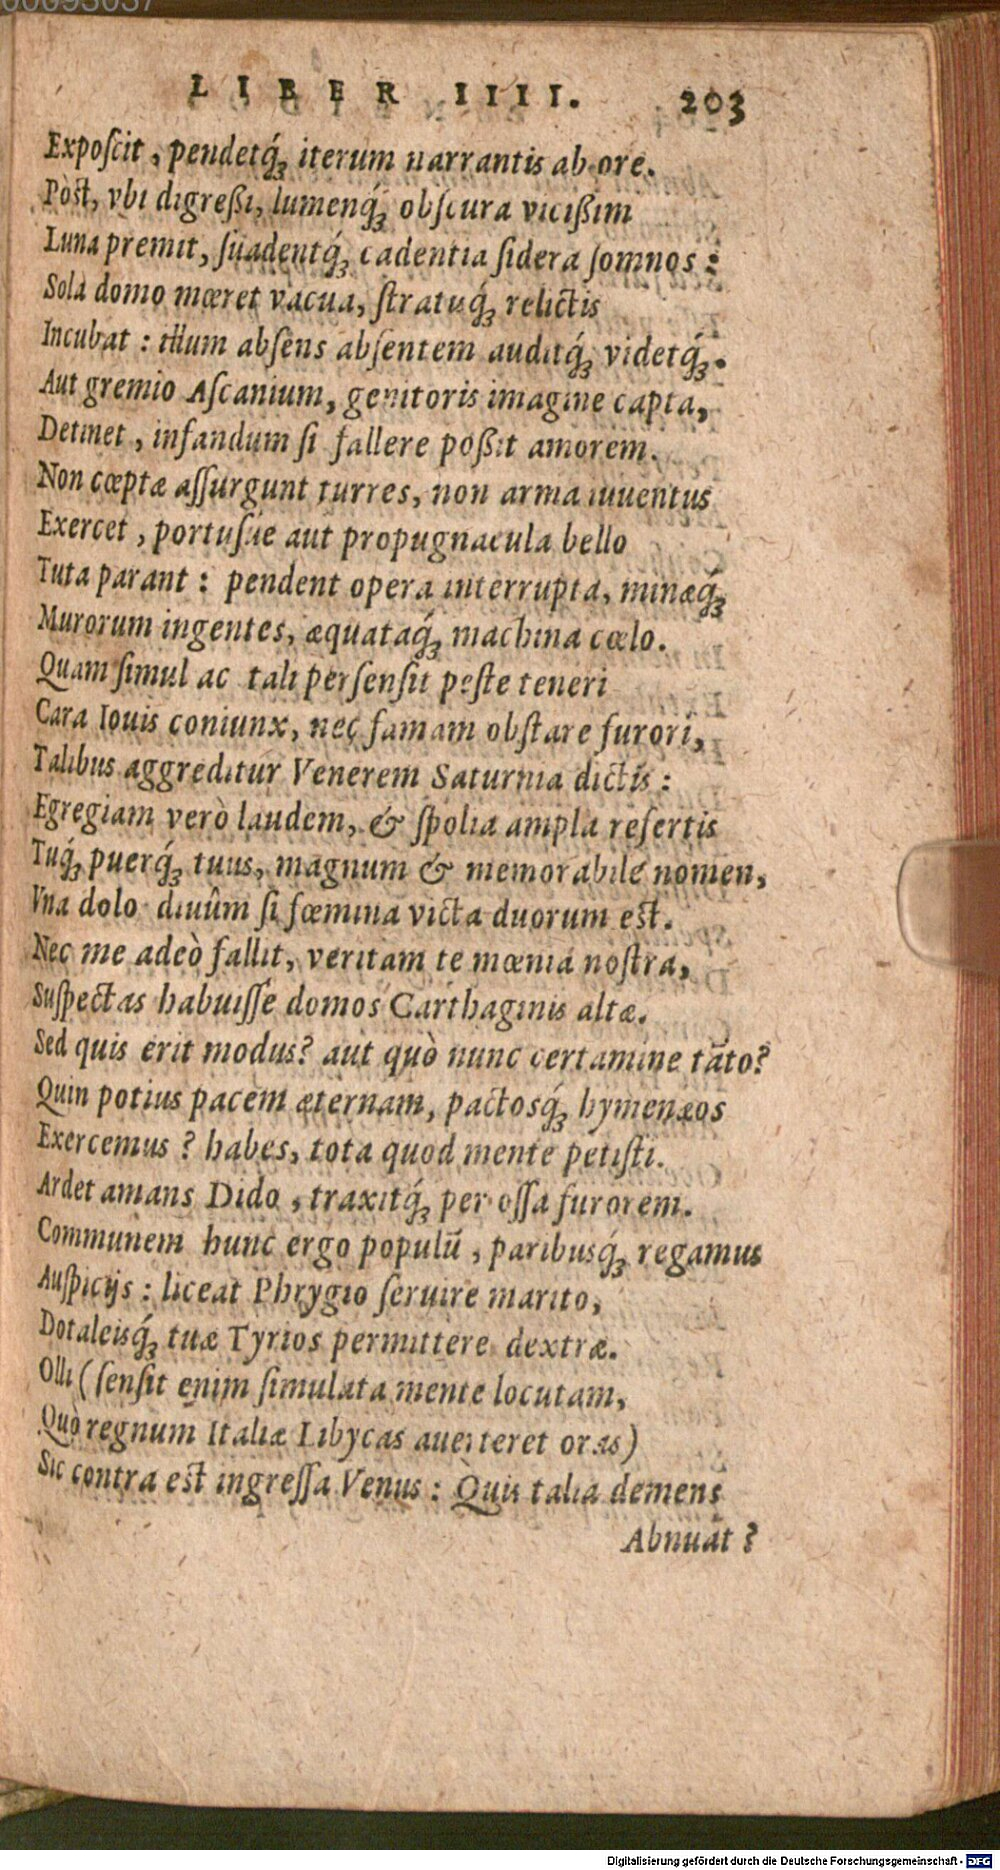 00093037
LIBER IIII. 203
Expoſcit, pendetq́ꝫ iterum narrantis ab ore.
Pòst, vbi digreßi, lumenq́ꝫ obſcura vicißim
Luna premit, ſuadentq́ꝫ cadentia ſidera ſomnos:
Sola domo mœret vacua, ſtratuq́ꝫ relictis
Incubat: illum abſens abſentem auditq́ꝫ videtq́ꝫ.
Aut gremio Aſcanium, genitoris imagine capta,
Detinet, infandum ſi fallere poßit amorem.
Non cœptæ aſſurgunt turres, non arma iuuentus
Exercet, portuſúe aut propugnacula bello
Tuta parant: pendent opera interrupta, minæq́ꝫ
Murorum ingentes, æquataq́ꝫ machina cœlo.
Quam ſimul ac tali perſenſit peſte teneri
Cara Iouis coniunx, nec famam obſtare furori,
Talibus aggreditur Venerem Saturnia dictis:
Egregiam verò laudem, & ſpolia ampla refertis
Tuq́ꝫ puerq́ꝫ tuus, magnum & memorabile nomen,
Vna dolo diuûm ſi fœmina victa duorum eſt.
Nec me adeò fallit, veritam te mœnia noſtra,
Suſpectas habuiſſe domos Carthaginis altæ.
Sed quis erit modus? aut quò nunc certamine tāto?
Quin potius pacem æternam, pactosq́ꝫ hymenæos
Exercemus? habes, tota quod mente petiſti.
Ardet amans Dido, traxitq́ꝫ per oſſa furorem.
Communem hunc ergo populū, paribusq́ꝫ regamus
Auſpicijs: liceat Phrygio ſeruire marito,
Dotaleisq́ꝫ tuæ Tyrios permittere dextræ.
Olli (ſenſit enim ſimulata mente locutam,
Quò regnum Italiæ Libycas auerteret oras)
Sic contra eſt ingreſſa Venus: Quis talia demens
Abnuat?
Digitalisierung gefördert durch die Deutsche Forschungsgemeinschaft - DFG